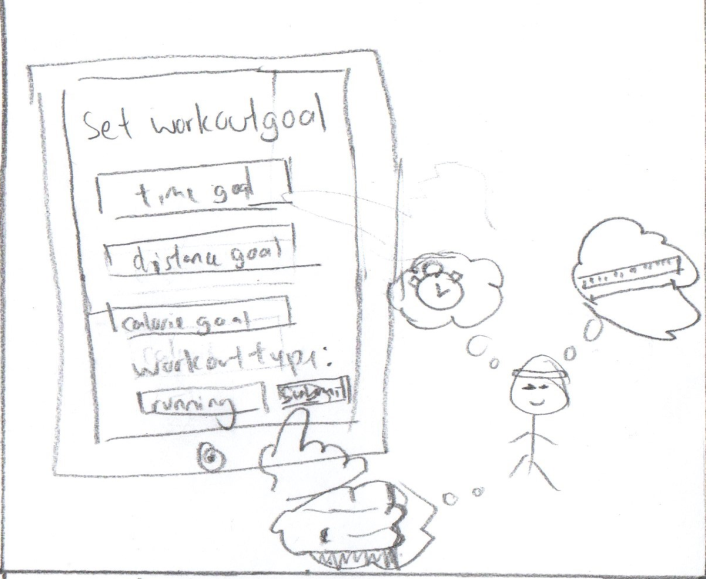 Set workout goal
time goal
distance goal
calorie goal
workout type:
running submit